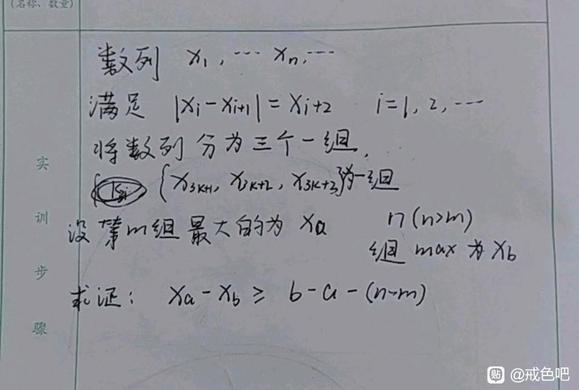 (名称、数量)
数列 x₁, ⋯ xₙ, ⋯
满足 |xᵢ-xᵢ₊₁| = xᵢ₊₂ i=1, 2, ⋯
将数列分为三个一组,
{x₃ₖ₊₁, x₃ₖ₊₂, x₃ₖ₊₂}为一组
设第m组最大的为 xₐ n(n>m)
组 max 为 x_b
求证: xₐ-x_b ≥ b-a-(n-m)
实
训
步
骤
贴 @戒色吧